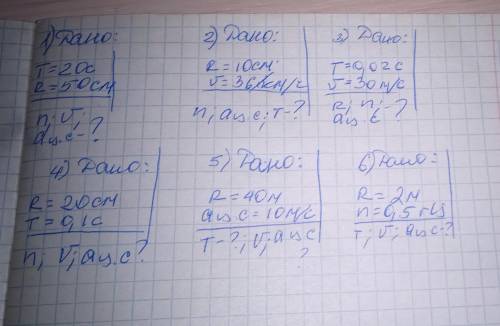 1) Дано:
T = 20с
R = 50см
n; υ;
aц.с - ?
2) Дано:
R = 10см
υ = 36км/ч
n; aц.с; T - ?
3) Дано:
T = 0,02с
υ = 30м/с
R; n; - ?
aц.с
4) Дано:
R = 20см
T = 0,1с
n; υ; aц.с ?
5) Дано:
R = 40м
aц.с = 10м/с
T - ?; υ; aц.с
?
6) Дано:
R = 2м
n = 0,5 гц
T; υ; aц.с - ?